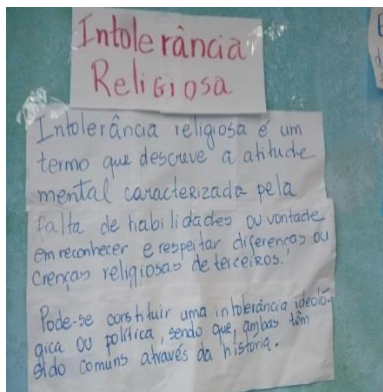 Intolerância
Religiosa
Intolerância religiosa é um
termo que descreve a atitude
mental caracterizada pela
falta de habilidades ou vontade
em reconhecer e respeitar diferenças ou
crenças religiosas de terceiros.
Pode-se constituir uma intolerância ideoló-
gica ou política, sendo que, ambas têm
sido comuns através da história.